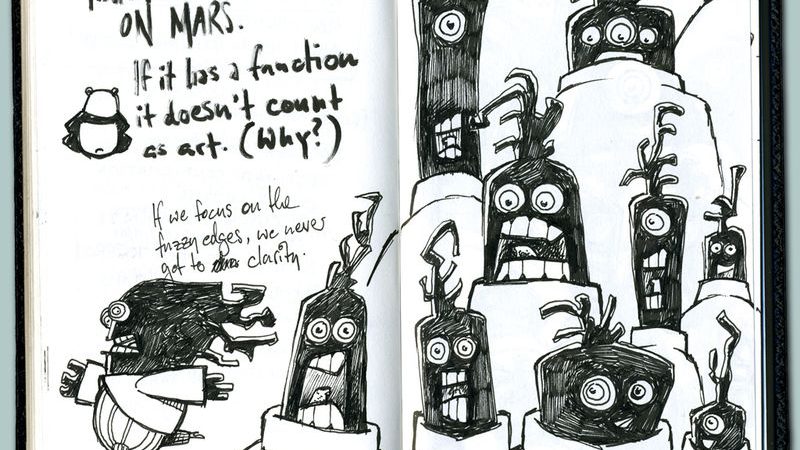 ON MARS.
If it has a function
it doesn't count
as art. (Why?)
If we focus on the
fuzzy edges, we never
get to clarity.